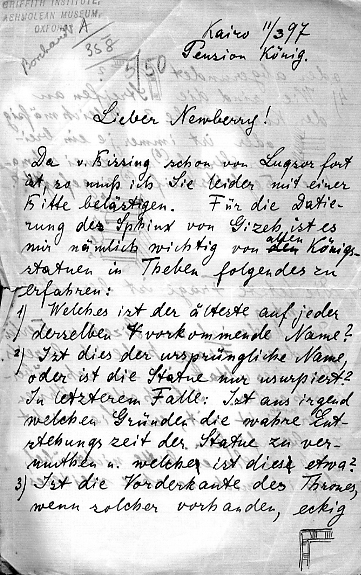 GRIFFITH INSTITUTE,
ASHMOLEAN MUSEUM,
OXFORD
Borchardt A
358
5/50
Kairo 11/3 97
Pension König.
Lieber Newberry!
Da v. Bissing schon von Luqsor fort
ist, so muß ich Sie leider mit einer
Bitte belästigen. Für die Datie-
rung des Sphinx von Gizeh ist es
mir nämlich wichtig von allen Königs-
statuen in Theben folgendes zu
erfahren:
1) Welches ist der älteste auf jeder
derselben vorkommende Name?
2) Ist dies der ursprüngliche Name,
oder ist die Statue nur usurpiert?
In letzterem Falle: Ist aus irgend
welchen Gründen die wahre Ent-
stehungszeit der Statue zu ver-
muthen u. welches ist diese etwa?
3) Ist die Vorderkante des Thrones,
wenn solcher vorhanden, eckig